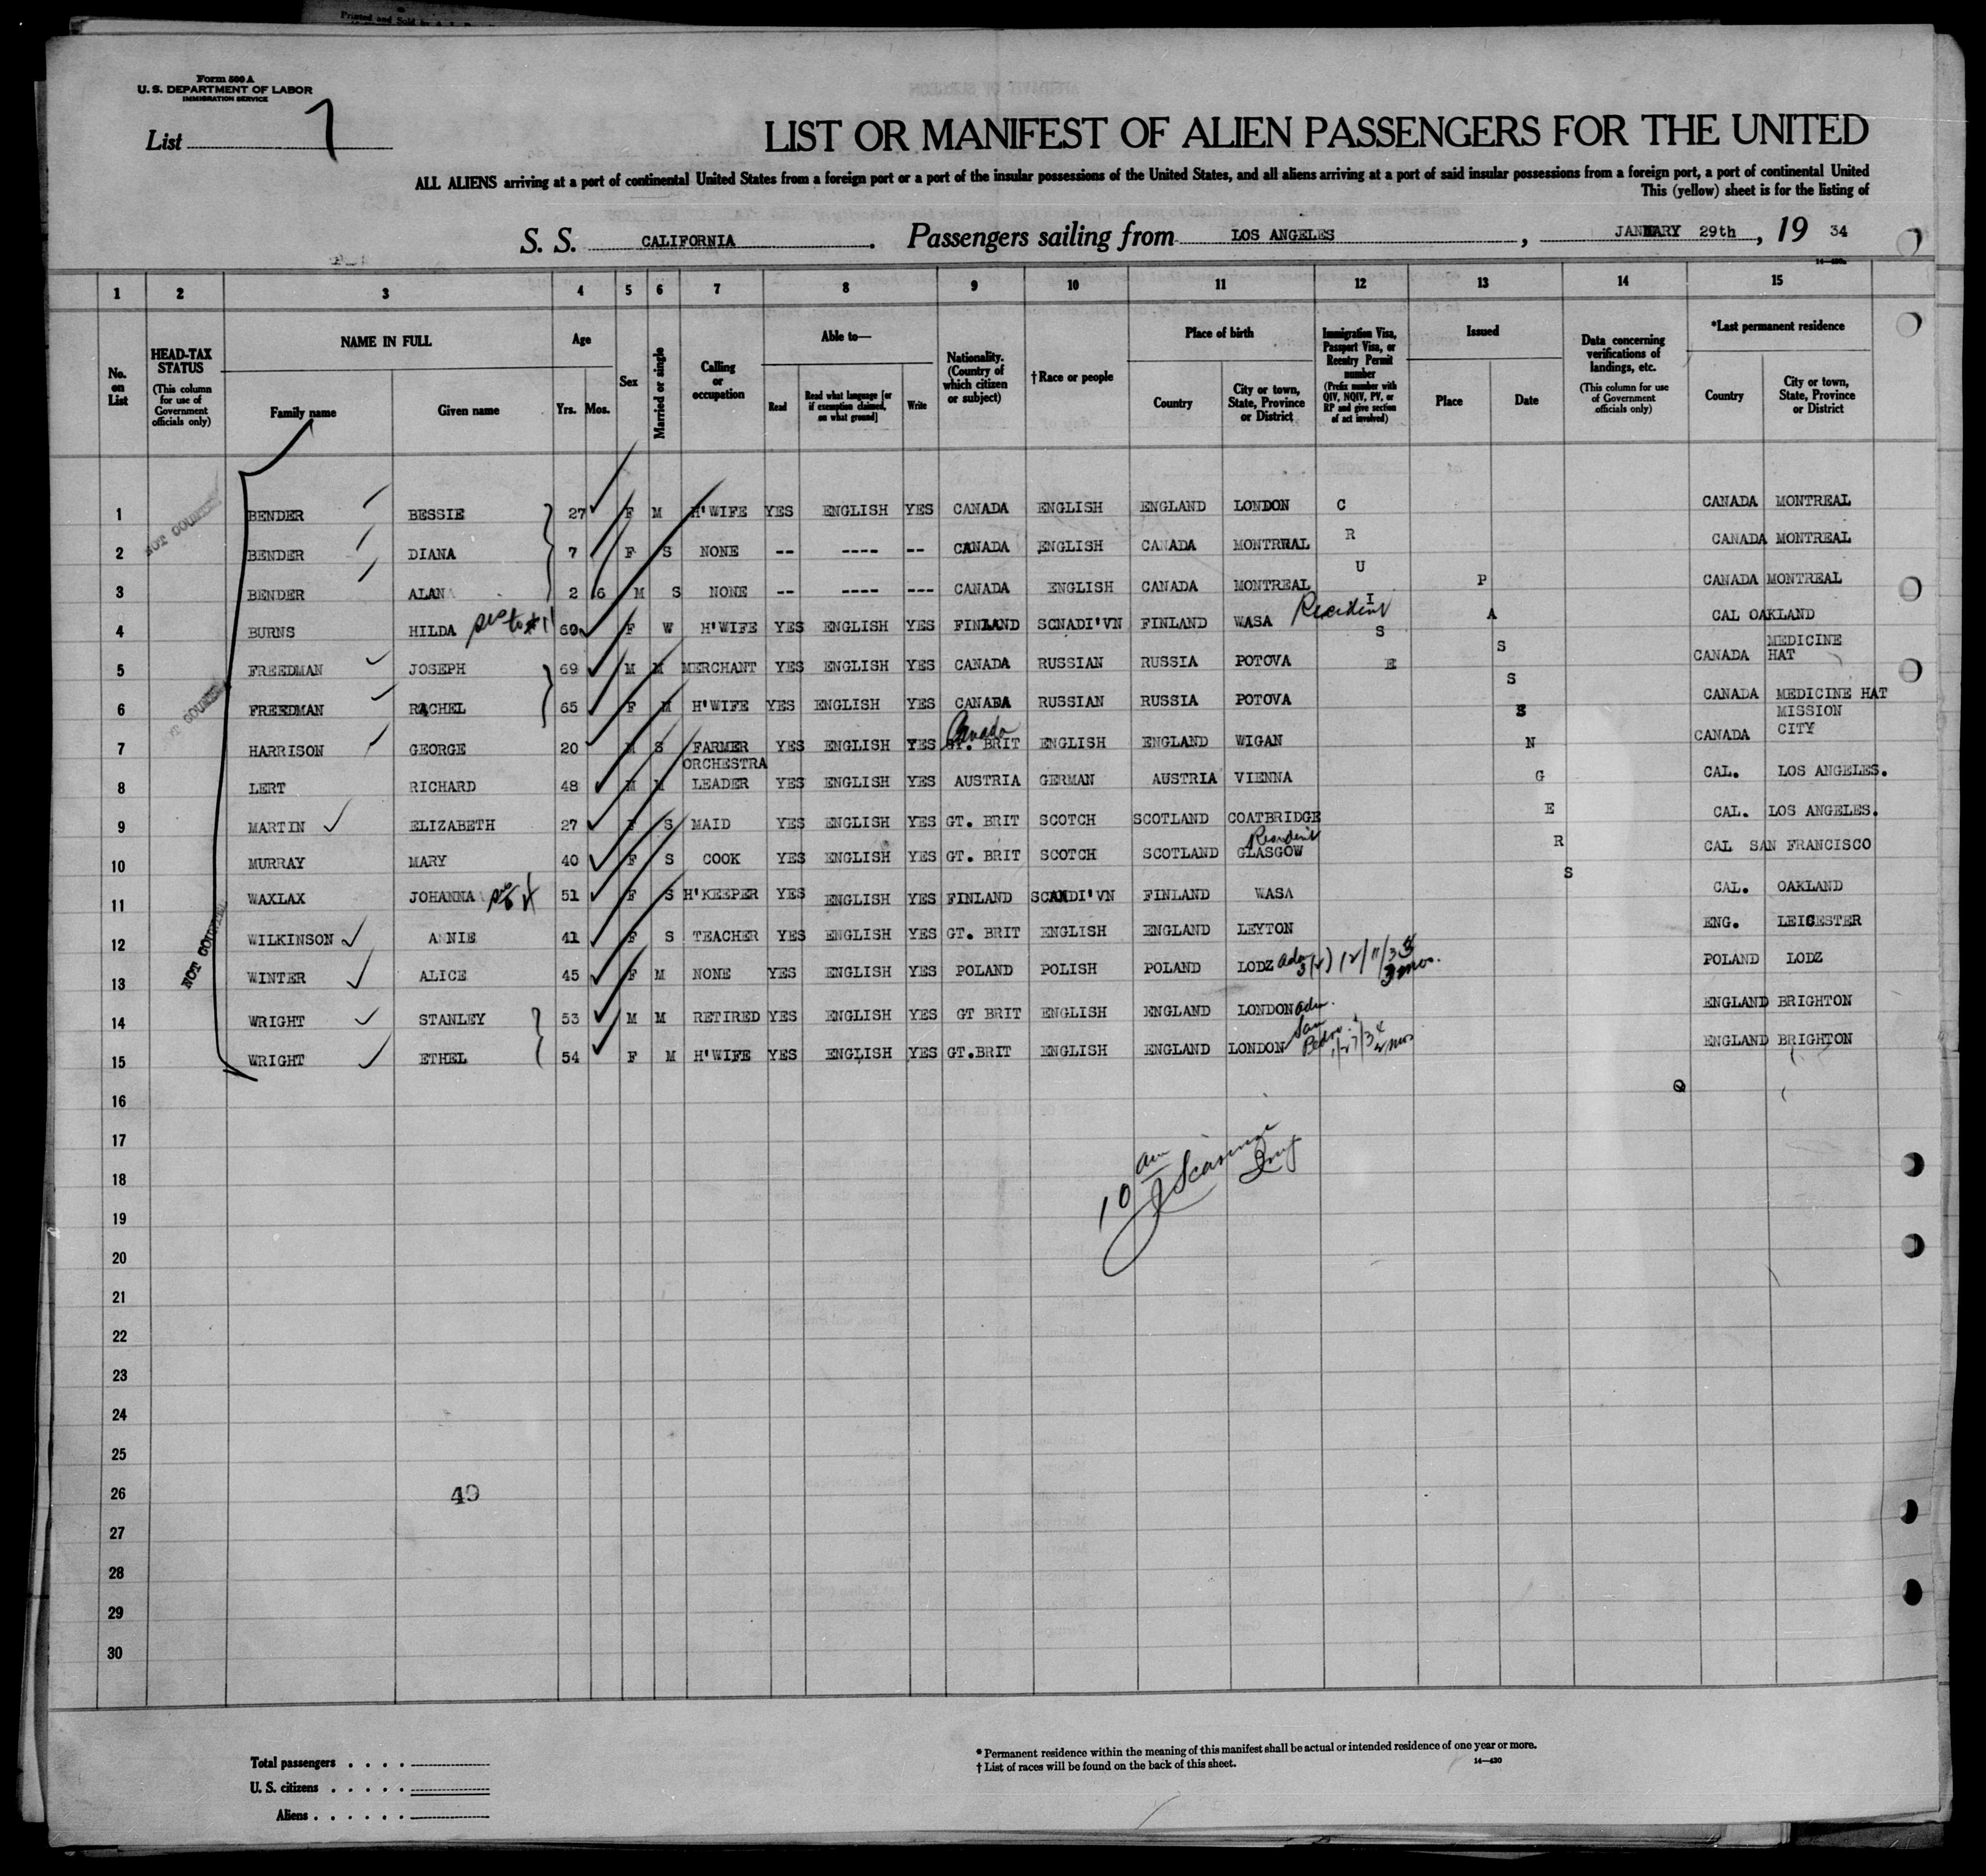 Printed and Sold by
Form 500 A
U. S. DEPARTMENT OF LABOR
IMMIGRATION SERVICE
List 7
LIST OR MANIFEST OF ALIEN PASSENGERS FOR THE UNITED
ALL ALIENS arriving at a port of continental United States from a foreign port or a port of the insular possessions of the United States, and all aliens arriving at a port of said insular possessions from a foreign port, a port of continental United
This (yellow) sheet is for the listing of
S. S. CALIFORNIA . Passengers sailing from LOS ANGELES , JANUARY 29th , 19 34
14—430a
1 2 3 4 5 6 7 8 9 10 11 12 13 14 15
No. on List
HEAD-TAX STATUS (This column for use of Government officials only)
NAME IN FULL
Family name Given name
Age
Yrs. Mos.
Sex
Married or single
Calling or occupation
Able to—
Read Read what language [or if exemption claimed, on what ground] Write
Nationality. (Country of which citizen or subject)
†Race or people
Place of birth
Country City or town, State, Province or District
Immigration Visa, Passport Visa, or Reentry Permit number (Prefix number with QIV, NQIV, PV, or RP and give section of act involved)
Issued
Place Date
Data concerning verifications of landings, etc. (This column for use of Government officials only)
*Last permanent residence
Country City or town, State, Province or District
NOT COUNTED
1 BENDER BESSIE 27 F M H'WIFE YES ENGLISH YES CANADA ENGLISH ENGLAND LONDON C CANADA MONTREAL
2 BENDER DIANA 7 F S NONE -- ---- -- CANADA ENGLISH CANADA MONTREAL R CANADA MONTREAL
3 BENDER ALAN 2 6 M S NONE -- ---- --- CANADA ENGLISH CANADA MONTREAL U P CANADA MONTREAL
4 BURNS HILDA sis to #11 60 F W H'WIFE YES ENGLISH YES FINLAND SCNADI'VN FINLAND WASA Resident I S A CAL OAKLAND
5 FREEDMAN JOSEPH 69 M M MERCHANT YES ENGLISH YES CANADA RUSSIAN RUSSIA POTOVA E S CANADA MEDICINE HAT
NOT COUNTED
6 FREEDMAN RACHEL 65 F M H'WIFE YES ENGLISH YES CANADA RUSSIAN RUSSIA POTOVA S E CANADA MEDICINE HAT
7 HARRISON GEORGE 20 M S FARMER YES ENGLISH YES GT. BRIT Canada ENGLISH ENGLAND WIGAN N CANADA MISSION CITY
8 LERT RICHARD 48 M M ORCHESTRA LEADER YES ENGLISH YES AUSTRIA GERMAN AUSTRIA VIENNA G CAL. LOS ANGELES.
9 MARTIN ELIZABETH 27 F S MAID YES ENGLISH YES GT. BRIT SCOTCH SCOTLAND COATBRIDGE E CAL. LOS ANGELES.
10 MURRAY MARY 40 F S COOK YES ENGLISH YES GT. BRIT SCOTCH SCOTLAND GLASGOW Resident R CAL SAN FRANCISCO
11 WAXLAX JOHANNA sis to 4 51 F S H'KEEPER YES ENGLISH YES FINLAND SCANDI'VN FINLAND WASA S CAL. OAKLAND
12 WILKINSON ANNIE 41 F S TEACHER YES ENGLISH YES GT. BRIT ENGLISH ENGLAND LEYTON ENG. LEICESTER
NOT COUNTED
13 WINTER ALICE 45 F M NONE YES ENGLISH YES POLAND POLISH POLAND LODZ adm 3(2) 12/11/33 3 mos. POLAND LODZ
14 WRIGHT STANLEY 53 M M RETIRED YES ENGLISH YES GT BRIT ENGLISH ENGLAND LONDON adm. ENGLAND BRIGHTON
15 WRIGHT ETHEL 54 F M H'WIFE YES ENGLISH YES GT.BRIT ENGLISH ENGLAND LONDON San Pedro 1/27/34 2 mos ENGLAND BRIGHTON
16
17
18
10 am
19
20
21
22
23
24
25
26 49
27
28
29
30
Total passengers . . . .
U. S. citizens . . . . .
Aliens . . . . . .
* Permanent residence within the meaning of this manifest shall be actual or intended residence of one year or more.
† List of races will be found on the back of this sheet.
14—430